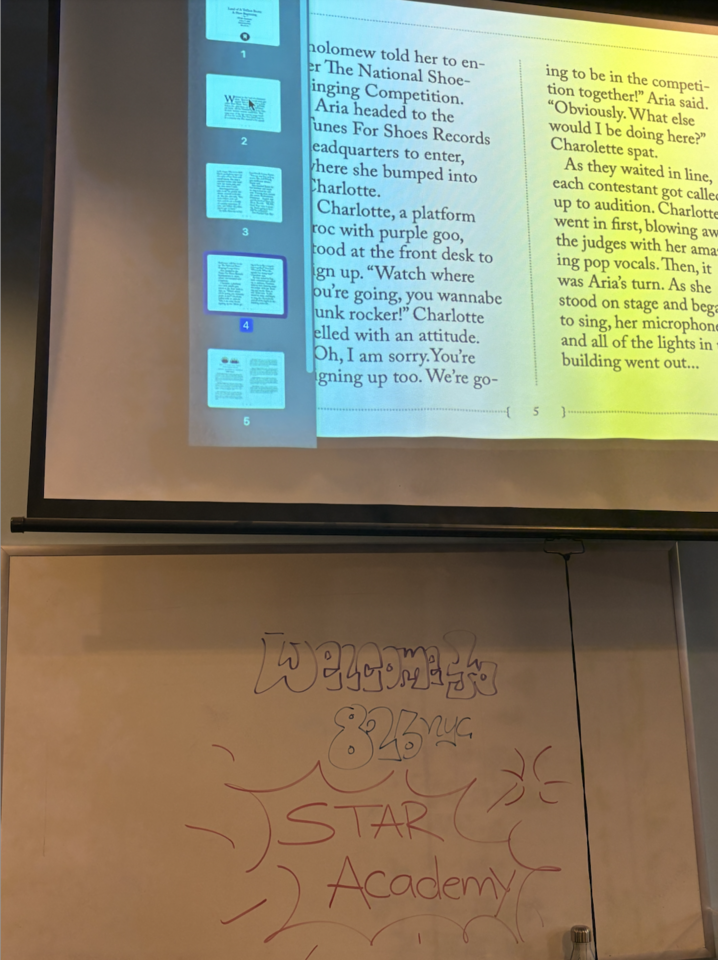 1
2
3
4
5
holomew told her to en-
er The National Shoe-
inging Competition.
Aria headed to the
Tunes For Shoes Records
eadquarters to enter,
where she bumped into
Charlotte.
Charlotte, a platform
roc with purple goo,
tood at the front desk to
ign up. “Watch where
ou’re going, you wannabe
unk rocker!” Charlotte
elled with an attitude.
Oh, I am sorry. You’re
igning up too. We’re go-
ing to be in the competi-
tion together!” Aria said.
“Obviously. What else
would I be doing here?”
Charolette spat.
As they waited in line,
each contestant got calle
up to audition. Charlotte
went in first, blowing aw
the judges with her ama
ing pop vocals. Then, it
was Aria’s turn. As she
stood on stage and bega
to sing, her microphon
and all of the lights in
building went out...
5
Welcome to
826 nyc
STAR
Academy